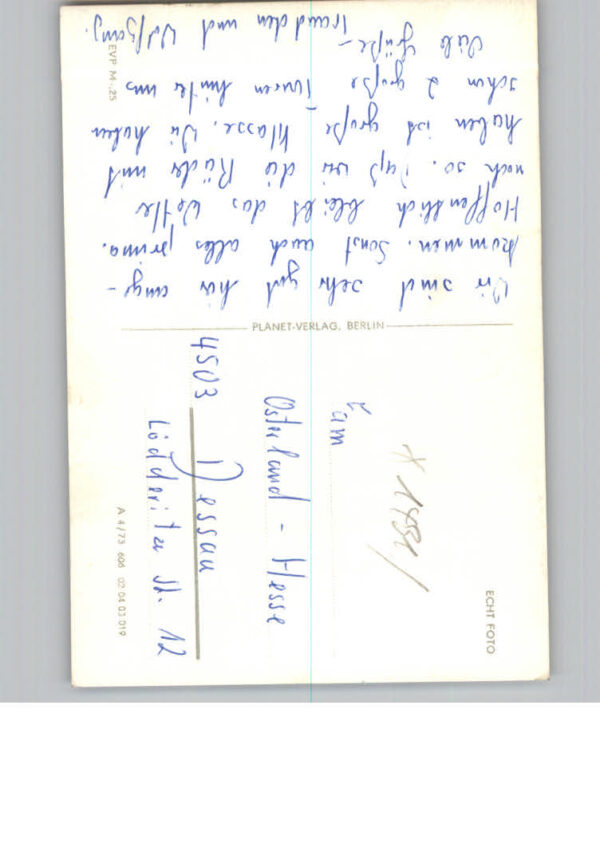 Wir sind sehr gut hier ange-
kommen. Sonst auch alles prima.
Hoffentlich bleibt das Wetter
noch so. Daß wir die Räder mit
haben ist große Klasse. Wir haben
schon 2 große Touren hinter uns
Viele Grüße –
Traudchen und Wolfgang.
EVP M -,25
PLANET-VERLAG, BERLIN
ECHT FOTO
Fam
Osterland - Hesse
4503 Dessau
Lödderitzer Str. 12
A 4/73 606 02 04 03 019